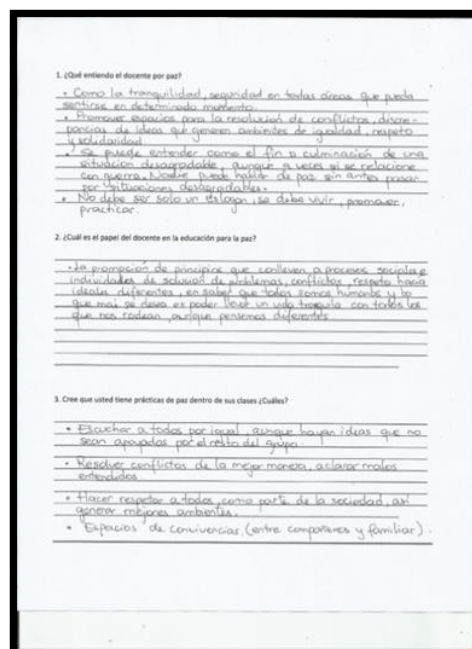 1. ¿Qué entiende el docente por paz?
• Como la tranquilidad, seguridad en todas áreas que pueda
sentirse en determinado momento.
• Promover espacios para la resolución de conflictos, discre-
pancias de ideas que generen ambientes de igualdad, respeto
y solidaridad
• Se puede entender como el fin o culminación de una
situación desagradable, aunque a veces si se relacione
con guerra. Nadie puede hablar de paz sin antes pasar
por situaciones desagradables.
• No debe ser solo un eslogan, se debe vivir, promover,
practicar.
2. ¿Cuál es el papel del docente en la educación para la paz?
• La promoción de principios que conlleven a procesos sociales e
individuales de solución de problemas, conflictos, respeto hacia
ideales diferentes, en saber que todos somos humanos y lo
que mas se desea es poder llevar un vida tranquila con todos los
que nos rodean, aunque pensemos diferentes
3. Cree que usted tiene prácticas de paz dentro de sus clases ¿Cuáles?
• Escuchar a todos por igual, aunque hayan ideas que no
sean apoyadas por el resto del grupo.
• Resolver conflictos de la mejor manera, aclarar malos
entendidos.
• Hacer respetar a todos, como parte de la sociedad, así
generar mejores ambientes.
• Espacios de convivencias, (entre compañeros y familiar).